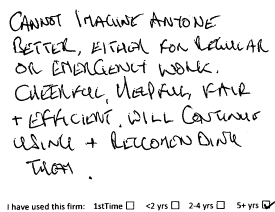 CANNOT IMAGINE ANYONE
BETTER, EITHER FOR REGULAR
OR EMERGENCY WORK.
CHEERFUL, HELPFUL, FAIR
+ EFFICIENT. WILL CONTINUE
USING + RECCOMENDING
THEM.
I have used this firm: 1stTime ☐ <2 yrs ☐ 2-4 yrs ☐ 5+ yrs ☑